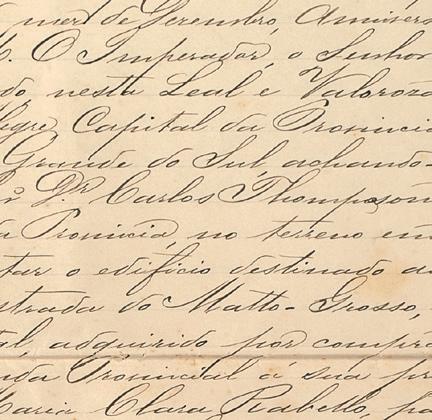 mez de Dezembro, Annivers
M. O Imperador, o Senhor
do nesta Leal e Valoroza
legre Capital da Provincia
Grande do Sul, achando-
Dr Carlos Thompson
da Provincia, no terreno em
tar o edificio destinado a
strada do Matto-Grosso,
tal, adquirido por compra
nda Provincial á sua pr
Maria Clara Rabello, p